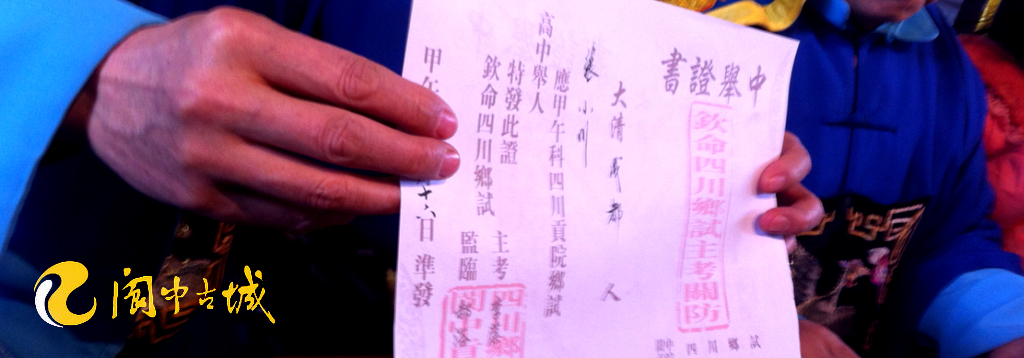 中舉證書
欽命四川鄉試主考關防
大清成都人
張小川
應甲午科四川貢院鄉試
高中舉人
特發此證
欽命四川鄉試
主考
監臨
四川鄉
閬中貢
甲午
十六日準發
四川鄉試
阆中古城